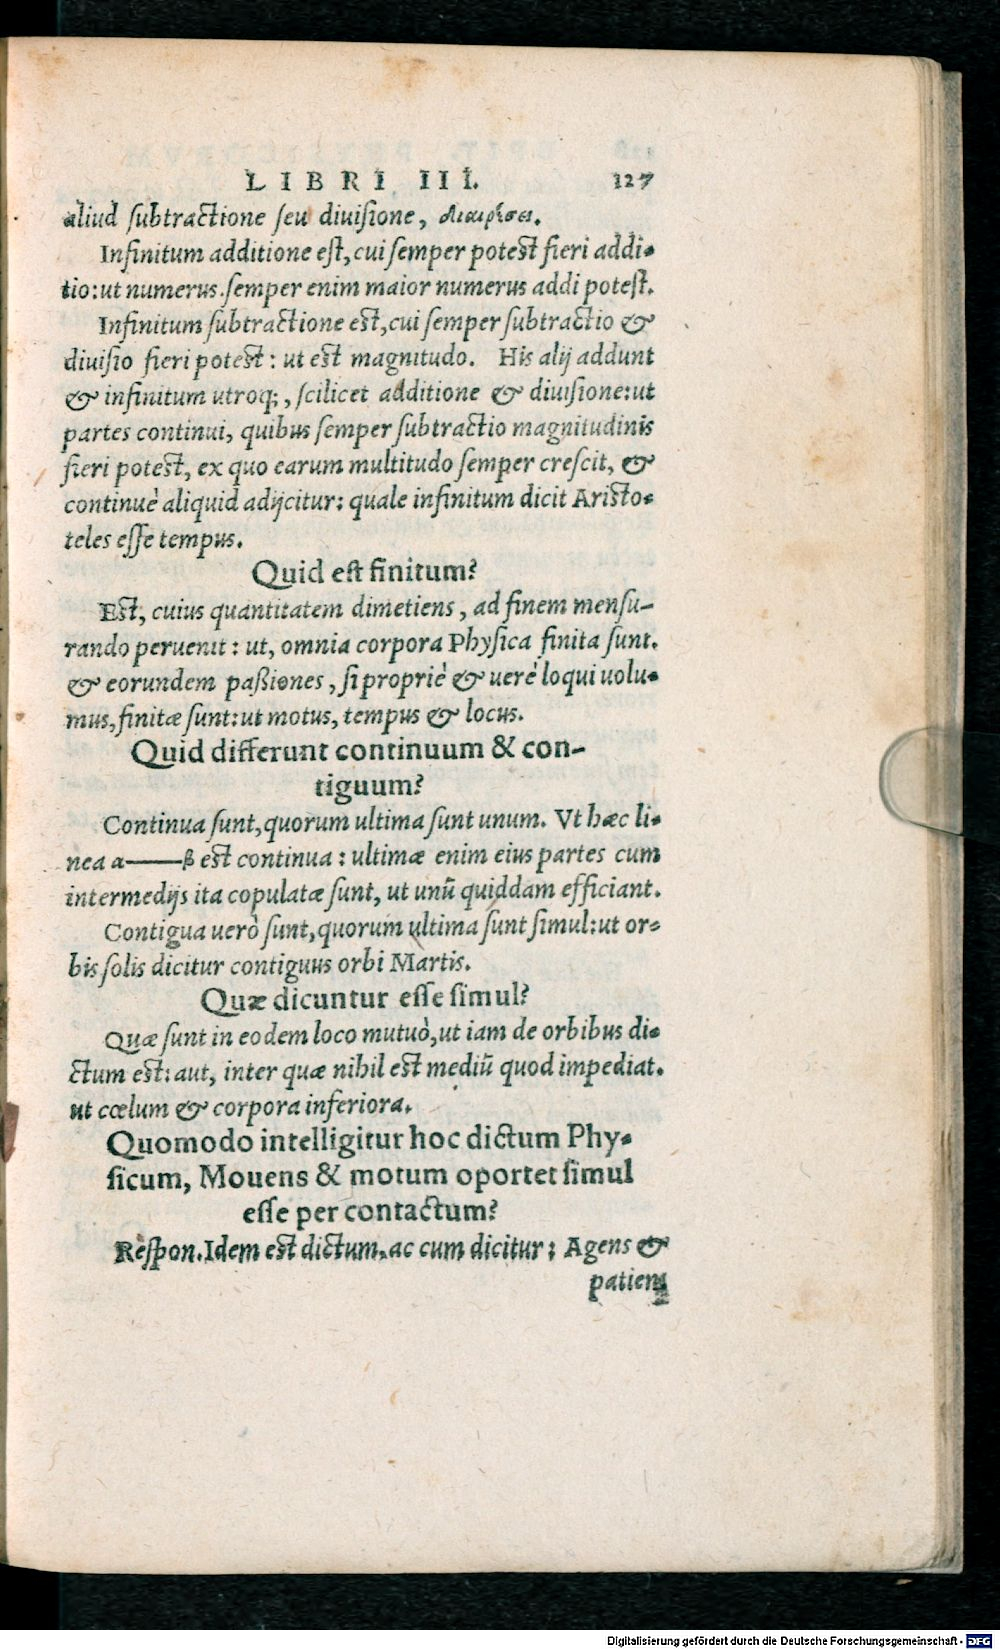 LIBRI III. 127
aliud subtractione seu diuisione, διαιρέσει.
Infinitum additione est, cui semper potest fieri addi-
tio: ut numerus. semper enim maior numerus addi potest.
Infinitum subtractione est, cui semper subtractio &
diuisio fieri potest: ut est magnitudo. His alij addunt
& infinitum utroq;, scilicet additione & diuisione: ut
partes continui, quibus semper subtractio magnitudinis
fieri potest, ex quo earum multitudo semper crescit, &
continuè aliquid adijcitur: quale infinitum dicit Aristo-
teles esse tempus.
Quid est finitum?
Est, cuius quantitatem dimetiens, ad finem mensu-
rando peruenit: ut, omnia corpora Physica finita sunt.
& eorundem paßiones, si propriè & uerè loqui uolu-
mus, finitæ sunt: ut motus, tempus & locus.
Quid differunt continuum & con-
tiguum?
Continua sunt, quorum ultima sunt unum. Vt hæc li-
nea α——β est continua: ultimæ enim eius partes cum
intermedijs ita copulatæ sunt, ut unũ quiddam efficiant.
Contigua uerò sunt, quorum ultima sunt simul: ut or-
bis solis dicitur contiguus orbi Martis.
Quæ dicuntur esse simul?
Quæ sunt in eodem loco mutuò, ut iam de orbibus di-
ctum est: aut, inter quæ nihil est mediũ quod impediat.
ut cœlum & corpora inferiora.
Quomodo intelligitur hoc dictum Phy-
sicum, Mouens & motum oportet simul
esse per contactum?
Respon. Idem est dictum, ac cum dicitur: Agens &
patiens
Digitalisierung gefördert durch die Deutsche Forschungsgemeinschaft - DFG